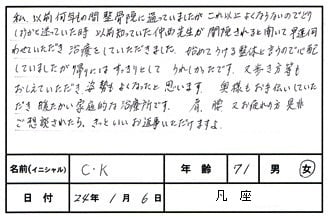 私、以前何年もの間整骨院に通っていましたがこれ以上よくならないのでどう
しようかと迷っていた時 以前知っていた仲西先生が開院されると聞いて早速伺
わせていただき治療をしていただきました。始めてうける整体と言うので心配
していましたが帰りにはすっきりとして うれしかったです。又歩き方等も
おしえていただき、姿勢もよくなったと思います。奥様もお手伝いしていた
だき暖かい家庭的な治療所です。肩、腰、又お疲れの方是非
ご想談されたら、きっといいお返事いただけますよ。
名前(イニシャル) C・K 年齢 71 男 女
日付 24年1月6日 凡座